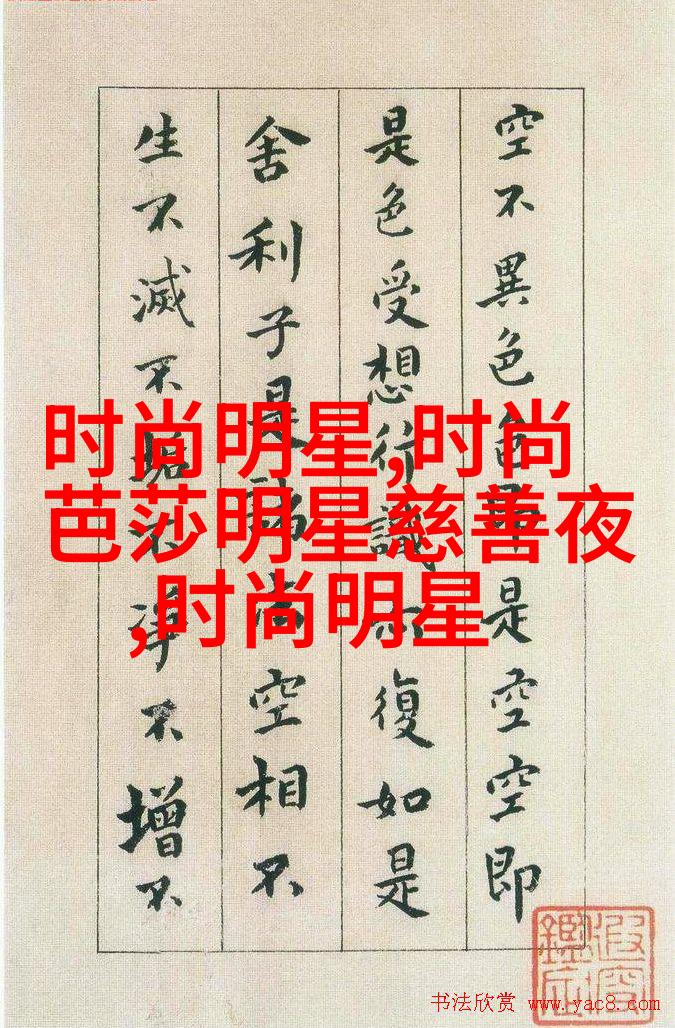 空不異色色即是空空即
是色受想行識亦復如是
舍利子是諸法空相不
生不滅不垢不淨不增不
时尚明星,时尚
芭莎明星慈善夜
,时尚明星
书法欣赏 www.yac8.com